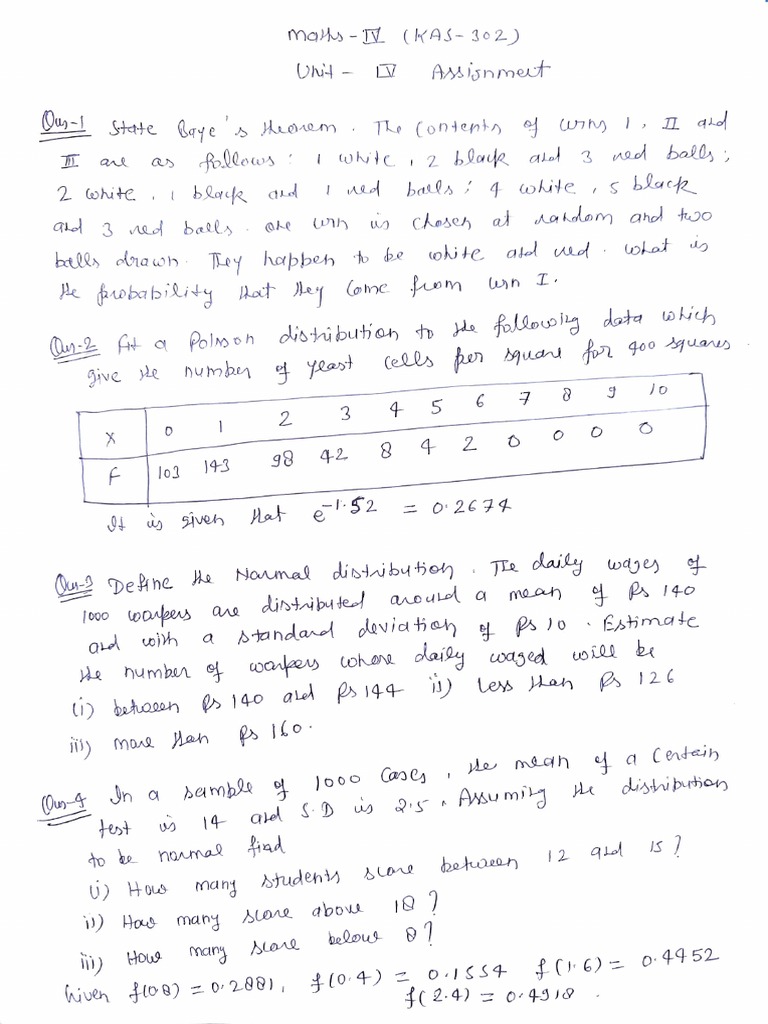 Maths-IV (KAS-302)
Unit - IV Assignment
Ques-1 State Baye's theorem. The contents of urns I, II and
III are as follows: 1 white, 2 black and 3 red balls;
2 white, 1 black and 1 red balls; 4 white, 5 black
and 3 red balls. one urn is chosen at random and two
balls drawn. They happen to be white and red. what is
the probability that they come from urn I.
Ques-2 Fit a Poisson distribution to the following data which
give the number of yeast cells per square for 400 squares.
X 0 1 2 3 4 5 6 7 8 9 10
F 103 143 98 42 8 4 2 0 0 0 0
It is given that e^-1.52 = 0.2674
Ques-3 Define the Normal distribution. The daily wages of
1000 workers are distributed around a mean of Rs 140
and with a standard deviation of Rs 10. Estimate
the number of workers whose daily waged will be
(i) between Rs 140 and Rs 144 ii) less than Rs 126
iii) more than Rs 160.
Ques-4 In a sample of 1000 cases, the mean of a certain
test is 14 and S.D is 2.5. Assuming the distribution
to be normal find
(i) How many students score between 12 and 15?
ii) How many score above 18?
iii) How many score below 8?
Given f(0.8) = 0.2881, f(0.4) = 0.1554 f(1.6) = 0.4452
f(2.4) = 0.4918.